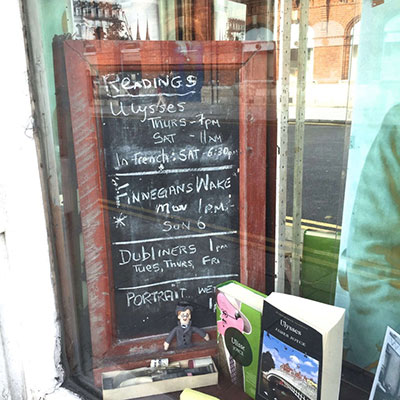 READINGS
Ulysses
THURS - 7PM
SAT - 11AM
In French: SAT - 6:30
FINNEGANS WAKE
MON 1P.M.
SUN 6
DUBLINERS 1PM
TUES, THURS, FRI
PORTRAIT WE
1
Ulysses
JAMES JOYCE
Ulysses